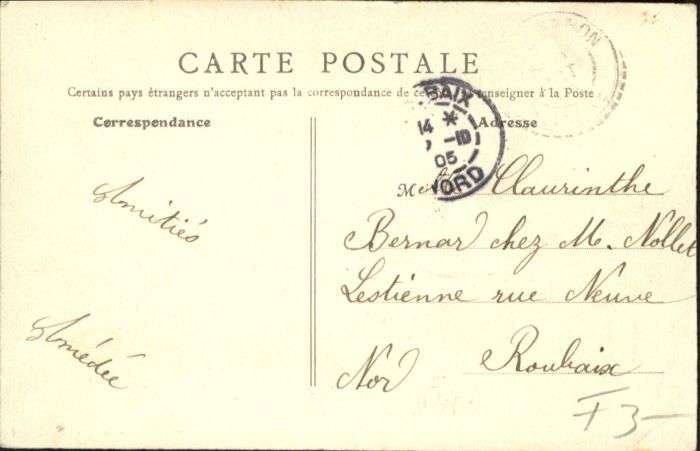 CARTE POSTALE
Certains pays étrangers n'acceptant pas la correspondance de ce enseigner à la Poste
Correspondance
Adresse
BAIX
14
-10
05
NORD
RON
Amitiés
Amédée
M Claurinthe
Bernar chez M. Nollet
Lestienne rue Neuve
Roubaix
Nor
F 3-